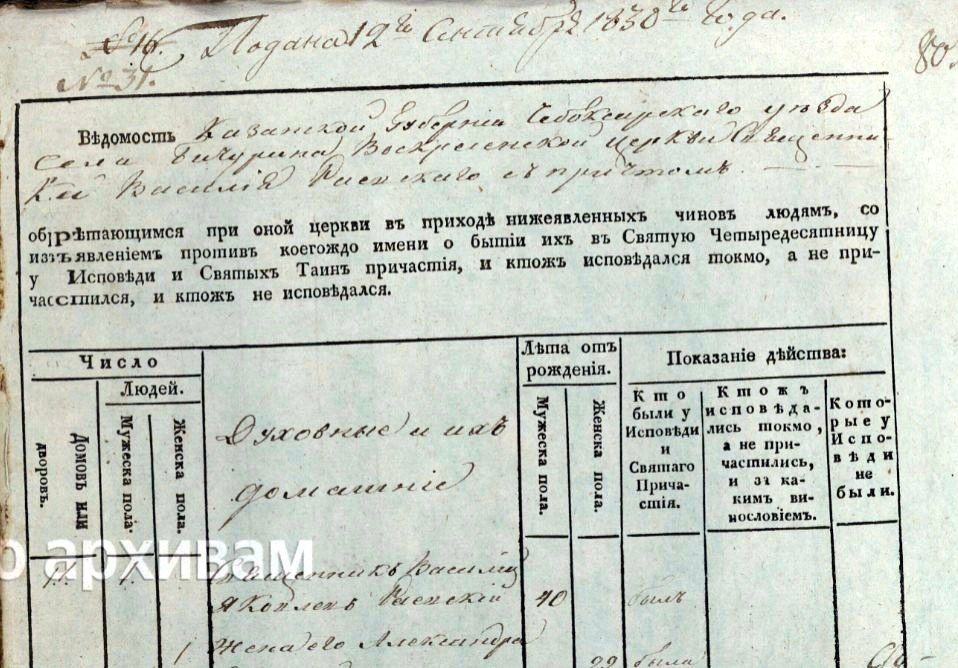 № 16. Подана 12го Сентября 1830го Года.
№ 31.
80.
Вѣдомость Казанской Губерніи Чебоксарскаго уѣзда
Села Бичурина Воскресенской церкви Священни-
ка Василія Раевскаго съ причтомъ.
обрѣтающимся при оной церкви въ приходѣ нижеявленныхъ чиновъ людямъ, со
изъявленіемъ противъ коегождо имени о бытіи ихъ въ Святую Четыредесятницу
у Исповѣди и Святыхъ Таинъ причастія, и ктожъ исповѣдался токмо, а не при-
частился, и ктожъ не исповѣдался.
Число
Людей.
Домовъ или
дворовъ.
Мужеска пола.
Женска пола.
Духовные и ихъ
домашніе
Лѣта отъ
рожденія.
Мужеска пола.
Женска пола.
Показаніе дѣйства:
Кто
были у
Исповѣди
и
Святаго
Прича-
стія.
Ктожъ
исповѣда-
лись токмо,
а не при-
частились,
и за ка-
кимъ ви-
нословіемъ.
Кото-
рые у
Испо-
вѣди
не
были.
о архивам
1. 1. Священникъ Василій
Яковлевъ Раевскій 40 былъ
1 Жена его Александра
была